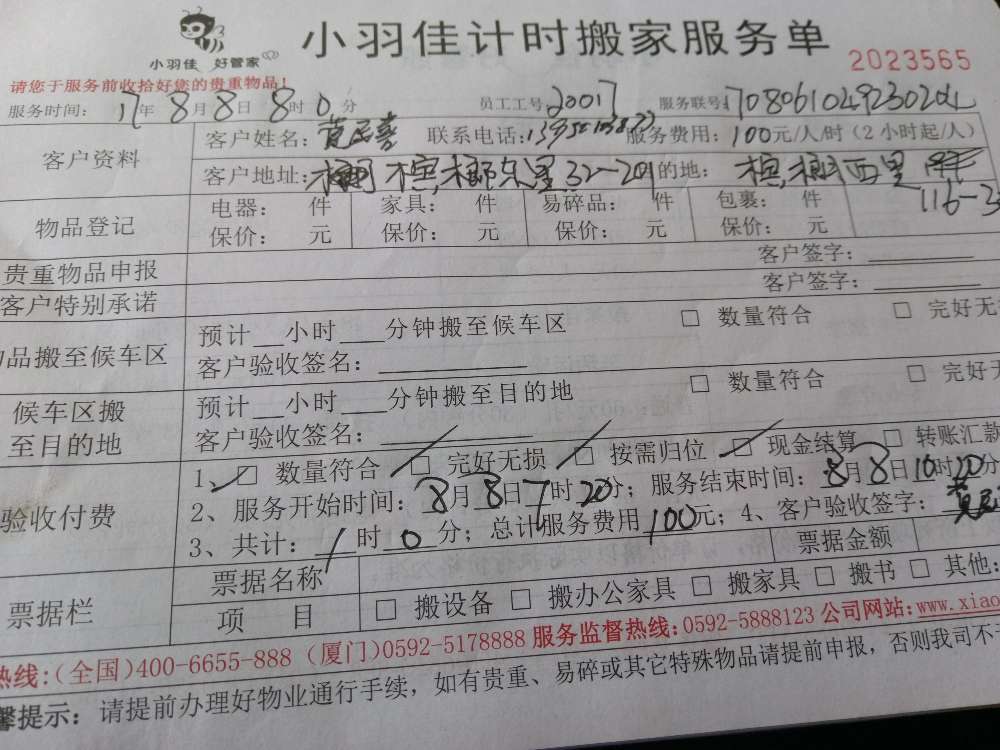 小羽佳 好管家
小羽佳计时搬家服务单
2023565
请您于服务前收拾好您的贵重物品!
服务时间: 17年 8月 8日 8时 0分 员工工号: 20017 服务联号:
客户资料
客户姓名: 联系电话: 服务费用: 100元/人/时(2小时起/人)
客户地址: 槟榔东里32-201 目的地: 槟榔西里
116-3
物品登记
电器: 件 家具: 件 易碎品: 件 包裹: 件
保价: 元 保价: 元 保价: 元 保价: 元
贵重物品申报 客户签字:
客户特别承诺 客户签字:
品搬至候车区
预计__小时___分钟搬至候车区 □ 数量符合 □ 完好无
客户验收签名:
候车区搬
至目的地
预计__小时___分钟搬至目的地 □ 数量符合 □ 完好无
客户验收签名:
验收付费
1、□ 数量符合 □ 完好无损 □ 按需归位 □ 现金结算 □ 转账汇款
2、服务开始时间: 8月 8日 7时 20分; 服务结束时间: 8月 8日 10时 20分
3、共计: 1时 0分; 总计服务费用 100元; 4、客户验收签字:
票据栏
票据名称 票据金额
项 目 □ 搬设备 □ 搬办公家具 □ 搬家具 □ 搬书 □ 其他:
热线:(全国)400-6655-888 (厦门)0592-5178888 服务监督热线:0592-5888123 公司网站:www.xiao
馨提示: 请提前办理好物业通行手续,如有贵重、易碎或其它特殊物品请提前申报,否则我司不